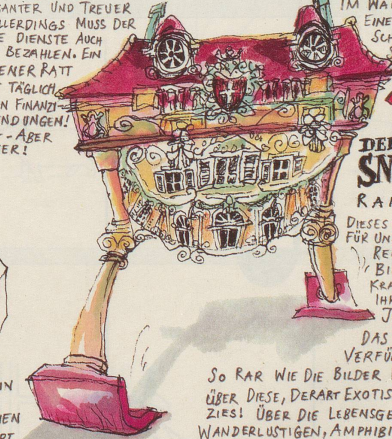 ANTER UND TREUER
LLERDINGS MUSS DER
E DIENSTE AUCH
BEZAHLEN. EIN
ENER RATT
TÄGLICH
N FINANZI-
ENDUNGEN!
- ABER
ER!
IM WA
EINE
SC
DER
SN
RA
DIESES
FÜR UN
RE
BI
KRA
IH
J
DAS
VERFÜ
SO RAR WIE DIE BILDER
ÜBER DIESE, DERART EXOTIS
ZIES! ÜBER DIE LEBENSGE
WANDERLUSTIGEN, AMPHIB
IN
EN